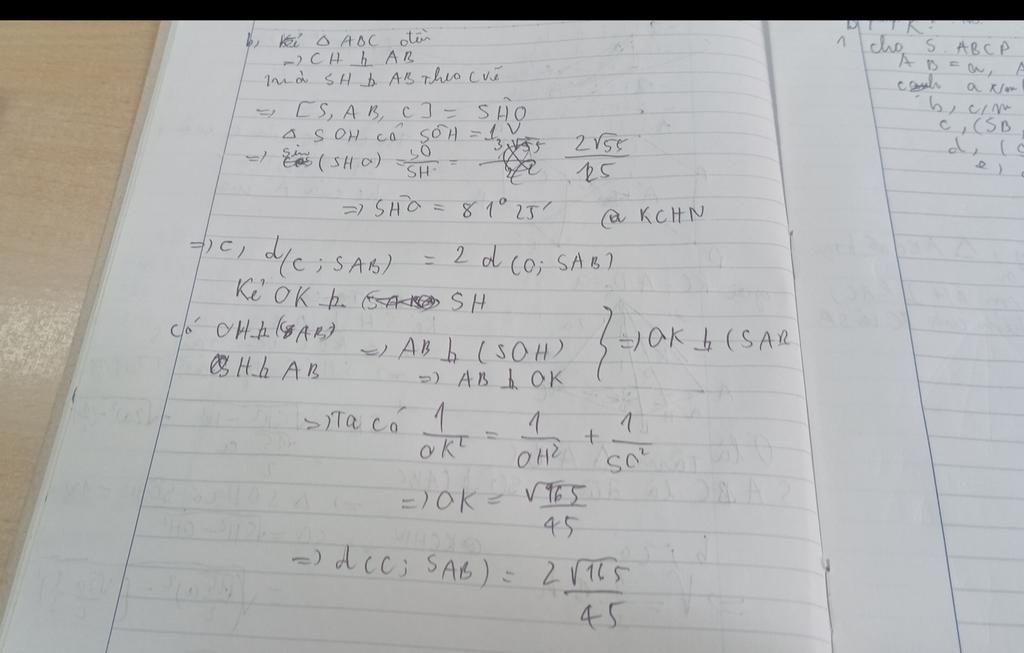 b, Kẻ Δ ABC đều
=> CH ⊥ AB
mà SH ⊥ AB theo c vẽ
=> [S, AB, C] = SHO
Δ SOH có SOH = 1V
=> sin (SHO) = SO/SH = 2√55/15
=> SHO = 81° 25' @ KCHN
=> c, d(C; SAB) = 2 d(O; SAB)
Kẻ OK ⊥ SH
có OH ⊥ (SAB)
SH ⊥ AB => AB ⊥ (SOH)
=> AB ⊥ OK } => OK ⊥ (SAB
=> Ta có 1/OK² = 1/OH² + 1/SO²
=> OK = √165/45
=> d(C; SAB) = 2√165/45
1 cho S ABCP
AB = a, A
cạnh a
b,
c, (SB,
d, (
e,